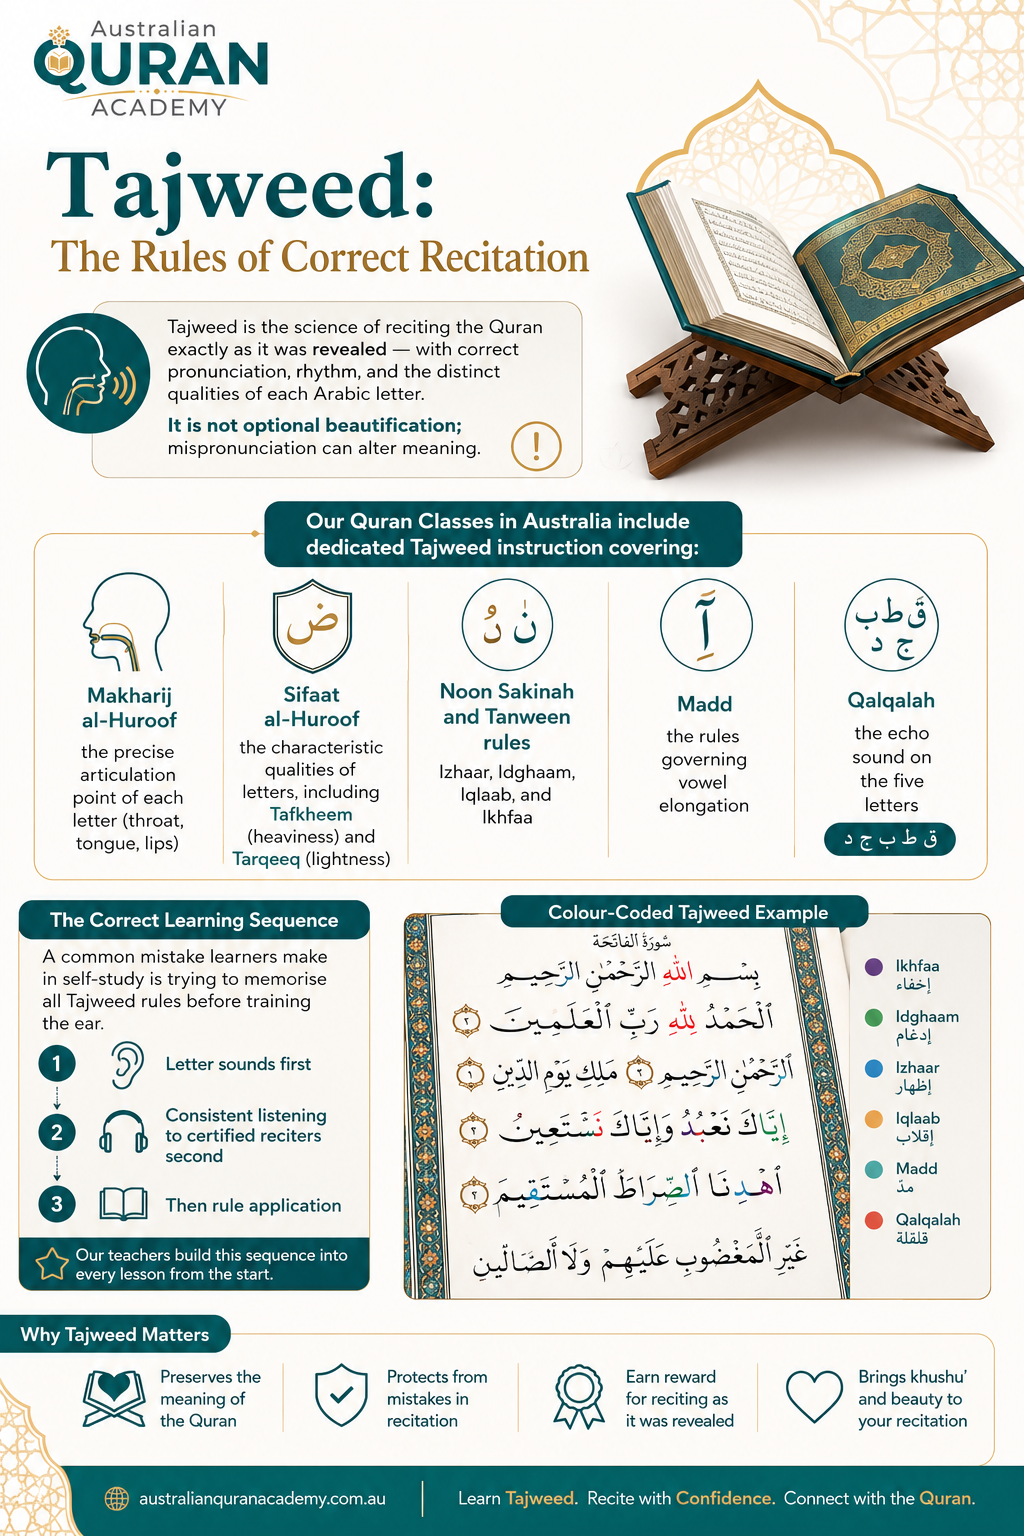 Australian
QURAN
ACADEMY
Tajweed:
The Rules of Correct Recitation
Tajweed is the science of reciting the Quran
exactly as it was revealed — with correct
pronunciation, rhythm, and the distinct
qualities of each Arabic letter.
It is not optional beautification;
mispronunciation can alter meaning.
!
Our Quran Classes in Australia include
dedicated Tajweed instruction covering:
Makharij
al-Huroof
the precise
articulation
point of each
letter (throat,
tongue, lips)
ض
Sifaat
al-Huroof
the characteristic
qualities of
letters, including
Tafkheem
(heaviness) and
Tarqeeq (lightness)
Noon Sakinah
and Tanween
rules
Izhaar, Idghaam,
Iqlaab, and
Ikhfaa
Madd
the rules
governing
vowel
elongation
ق ط ب
ج د
Qalqalah
the echo
sound on
the five
letters
ق ط ب ج د
The Correct Learning Sequence
A common mistake learners make
in self-study is trying to memorise
all Tajweed rules before training
the ear.
1
Letter sounds first
2
Consistent listening
to certified reciters
second
3
Then rule application
Our teachers build this sequence into
every lesson from the start.
Colour-Coded Tajweed Example
سُورَةُ الفَاتَحَة
بِسْمِ اللهِ الرَّحْمٰنِ الرَّحِيمِ
الْحَمْدُ لِلهِ رَبِّ الْعَلَمِينَ ٢
الرَّحْمٰنِ الرَّحِيمِ ٢ مَلِكِ يَوْمِ الدِّينِ ١
إِيَّاكَ نَعْبُدُ وَإِيَّاكَ نَسْتَعِينُ ٢
ٱهْدِنَا الصِّرَاطَ الْمُسْتَقِيمَ ٢
غَيْرِ الْمَغْضُوبِ عَلَيْهِمْ وَلَا الضَّالِّينِ
Ikhfaa
إخفاء
Idghaam
إدغام
Izhaar
إظهار
Iqlaab
إقلاب
Madd
مدّ
Qalqalah
قلقلة
Why Tajweed Matters
Preserves the
meaning of
the Quran
Protects from
mistakes in
recitation
Earn reward
for reciting as
it was revealed
Brings khushu'
and beauty to
your recitation
australianquranacademy.com.au
Learn Tajweed. Recite with Confidence. Connect with the Quran.